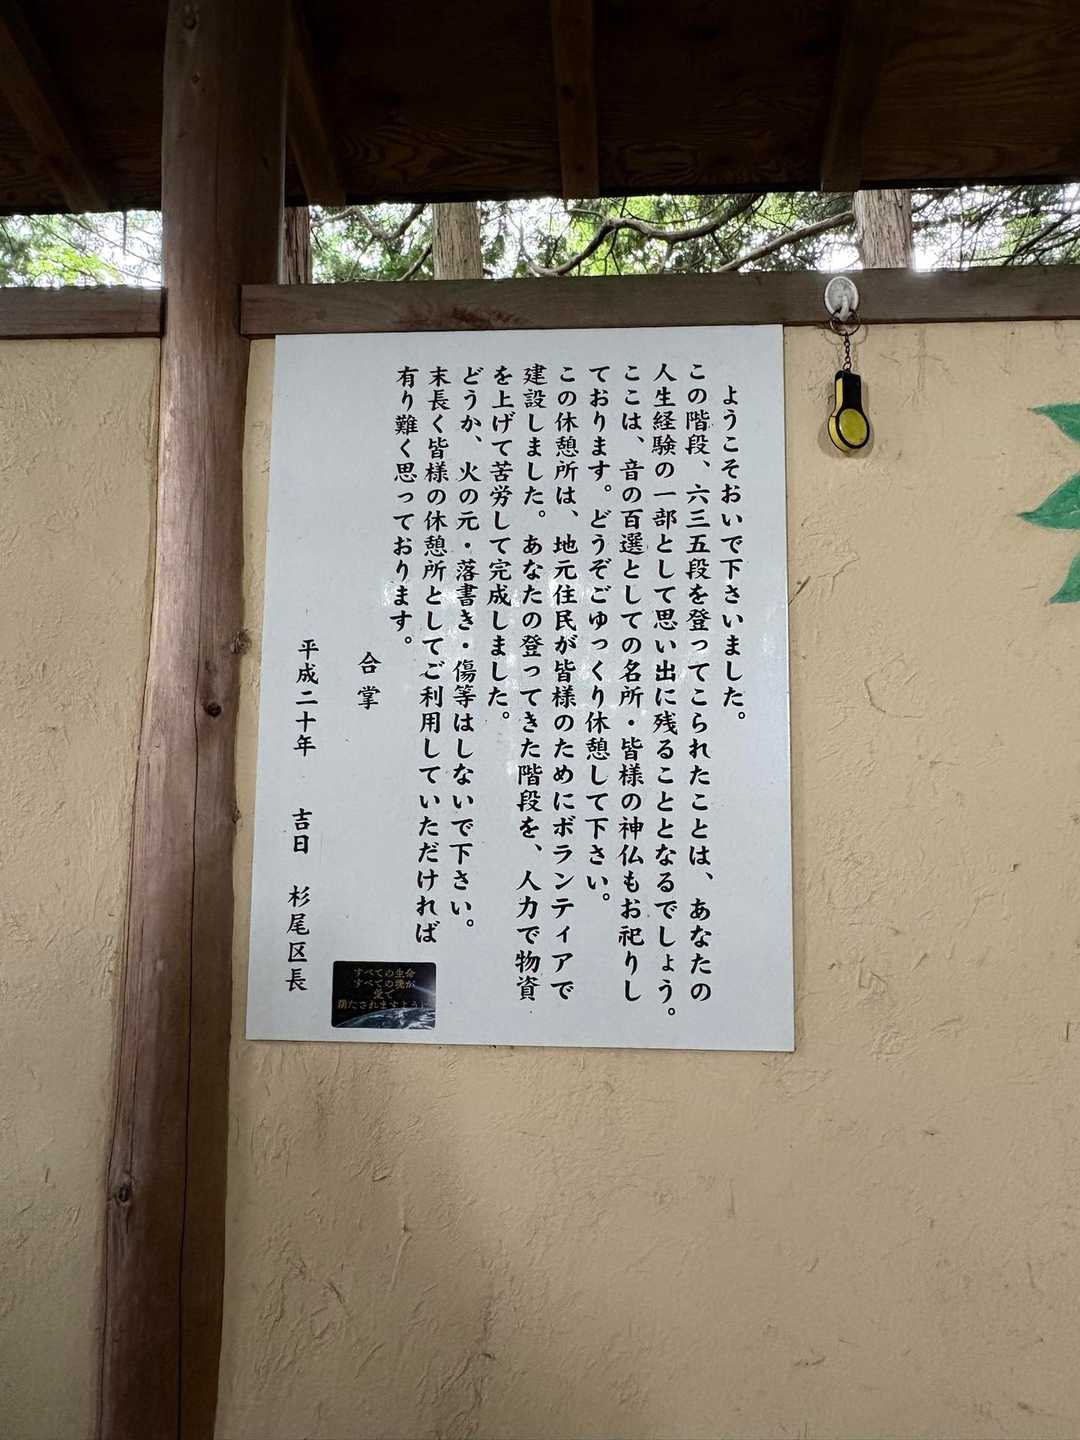 ようこそおいで下さいました。
この階段、六三五段を登ってこられたことは、あなたの
人生経験の一部として思い出に残ることとなるでしょう。
ここは、音の百選としての名所・皆様の神仏もお祀りし
ております。どうぞごゆっくり休憩して下さい。
この休憩所は、地元住民が皆様のためにボランティアで
建設しました。あなたの登ってきた階段を、人力で物資
を上げて苦労して完成しました。
どうか、火の元・落書き・傷等はしないで下さい。
末長く皆様の休憩所としてご利用していただければ
有り難く思っております。
合掌
平成二十年 吉日 杉尾区長
すべての生命
すべての魂が
愛で
満たされますように